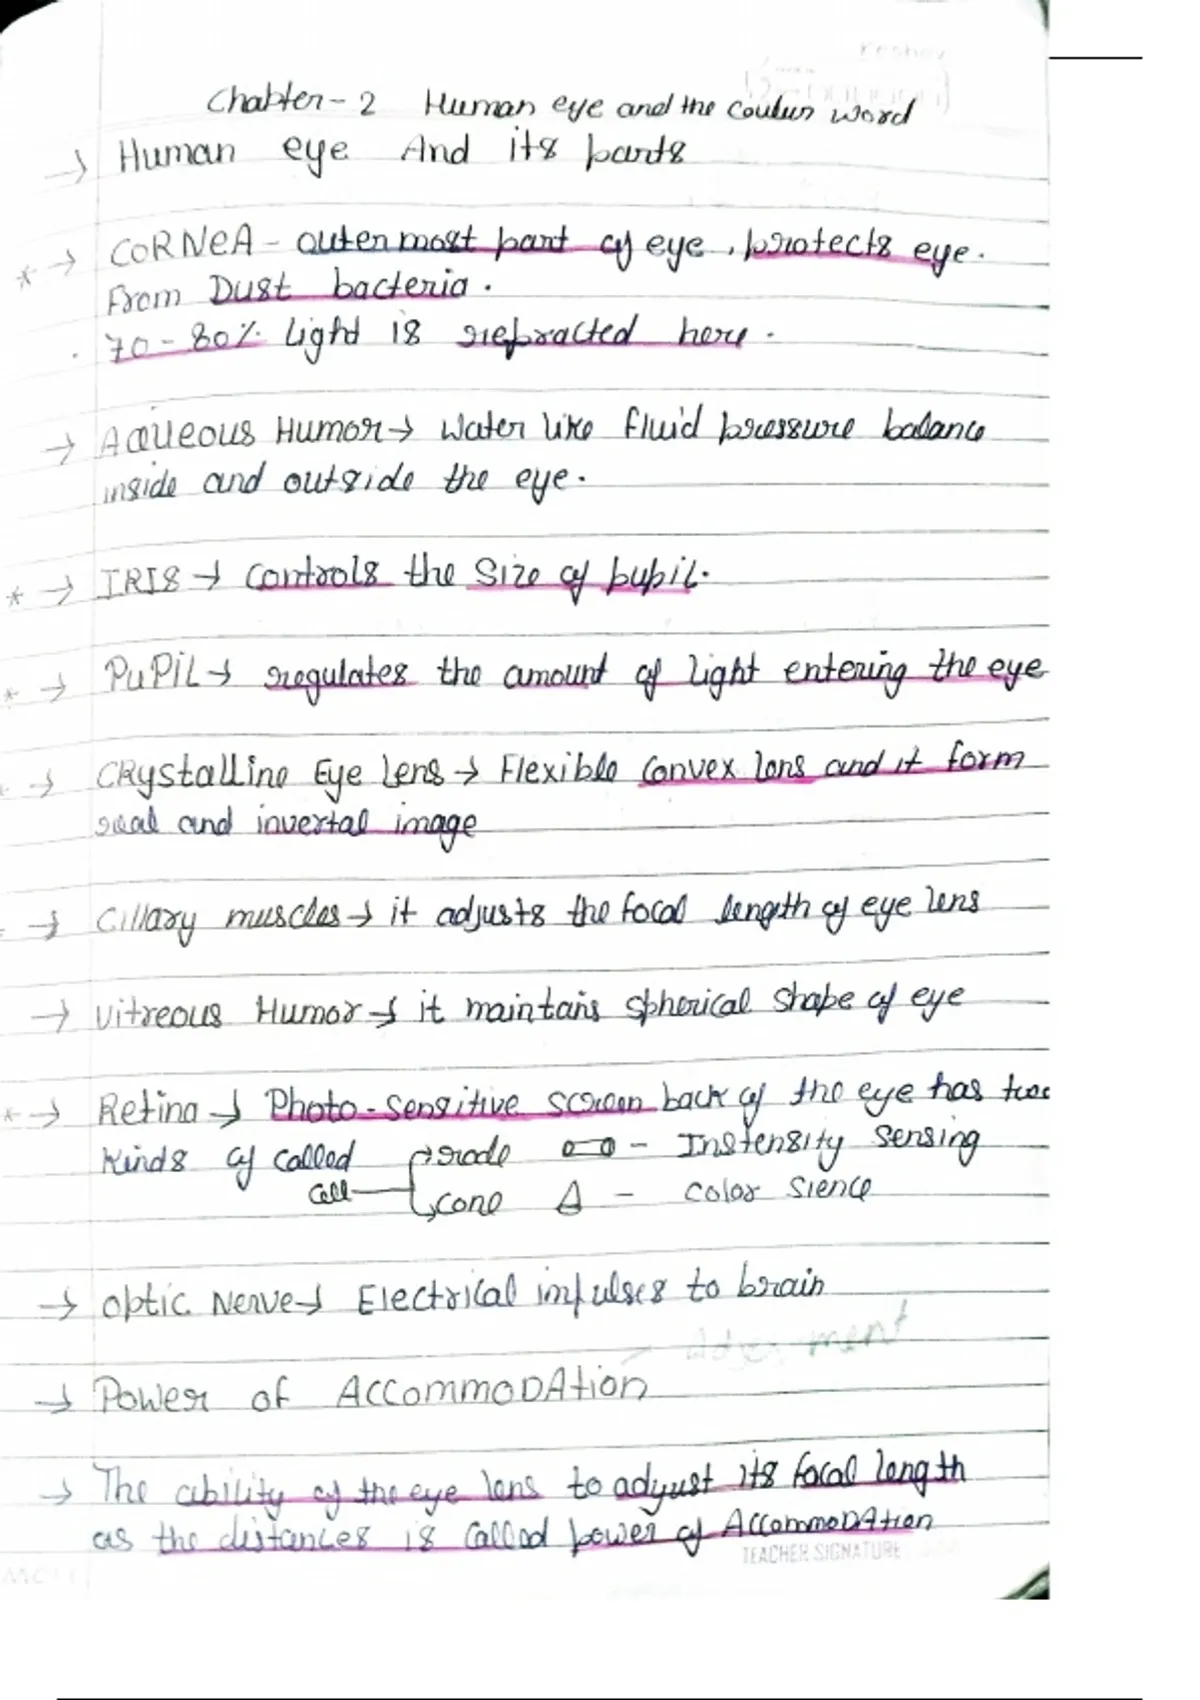 Chapter - 2 Human eye and the Coulur word
→ Human eye And its parts
* → CORNeA - outermost part of eye, protects eye.
From Dust bacteria.
. 70-80% light is refracted here.
→ Aqueous Humor → Water like fluid pressure balance
inside and outside the eye.
* → IRIS → Controls the Size of pupil.
* → PuPiL → regulates the amount of light entering the eye
→ CRystalline Eye lens → Flexible Convex lens and it form
real and invertal image
→ Cillary muscles → it adjusts the focal length of eye lens
→ vitreous Humor → it maintais spherical Shape of eye
* → Retina → Photo-sensitive screen back of the eye has two
kinds of called → rode - Instensity sensing
cell → cone - Color Sience
→ optic Nerve → Electrical impulses to brain
→ Power of ACCommoDAtion
→ The ability of the eye lens to adyust its focal length
as the distances is Called power of ACCommoDAtion
TEACHER SIGNATURE